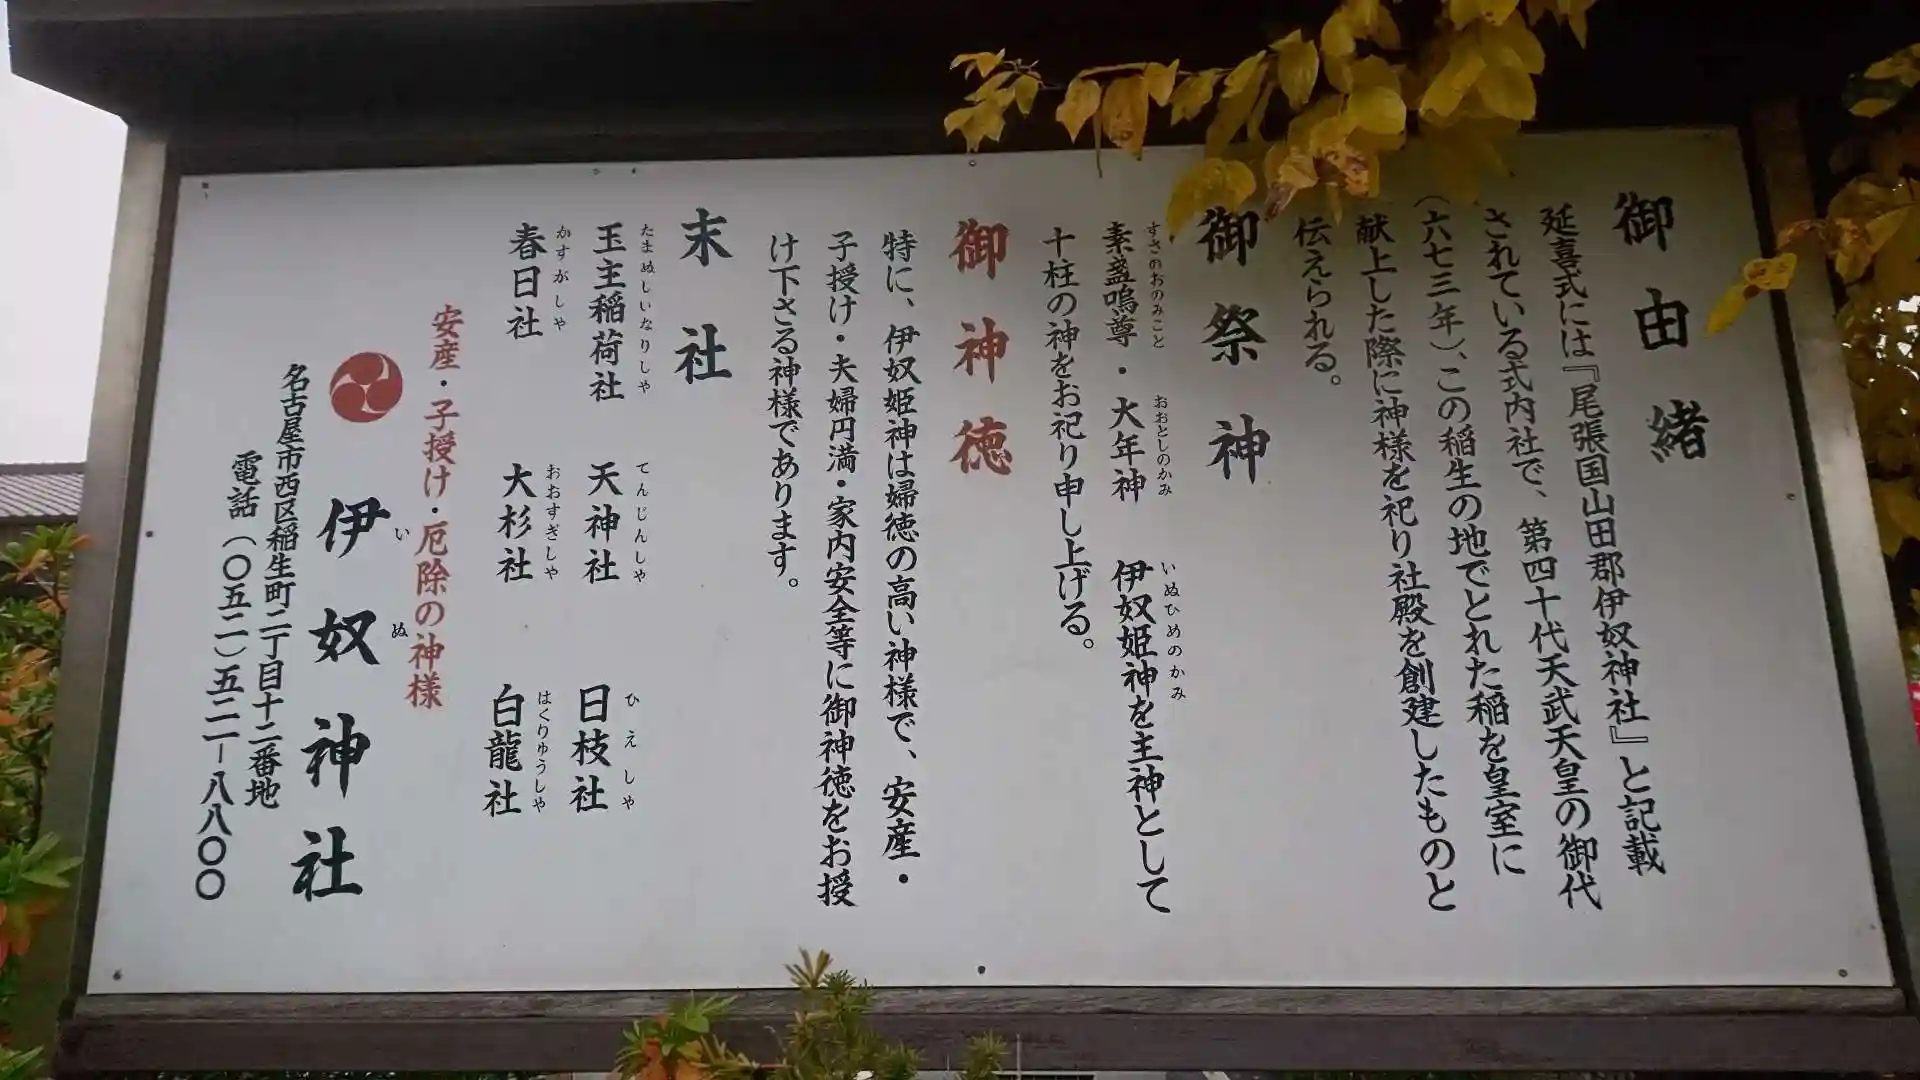 御由緒
延喜式には『尾張国山田郡伊奴神社』と記載
されている式内社で、第四十代天武天皇の御代
(六七三年)、この稲生の地でとれた稲を皇室に
献上した際に神様を祀り社殿を創建したものと
伝えられる。
御祭神
すさのおのみこと おおとしのかみ いぬひめのかみ
素盞嗚尊・大年神 伊奴姫神を主神として
十柱の神をお祀り申し上げる。
御神徳
特に、伊奴姫神は婦徳の高い神様で、安産・
子授け・夫婦円満・家内安全等に御神徳をお授
け下さる神様であります。
末社
たまぬしいなりしや てんじんしや ひえしや
玉主稲荷社 天神社 日枝社
かすがしや おおすぎしや はくりゅうしや
春日社 大杉社 白龍社
安産・子授け・厄除の神様
いぬ
伊奴神社
名古屋市西区稲生町二丁目十二番地
電話(〇五二)五二一−八八〇〇